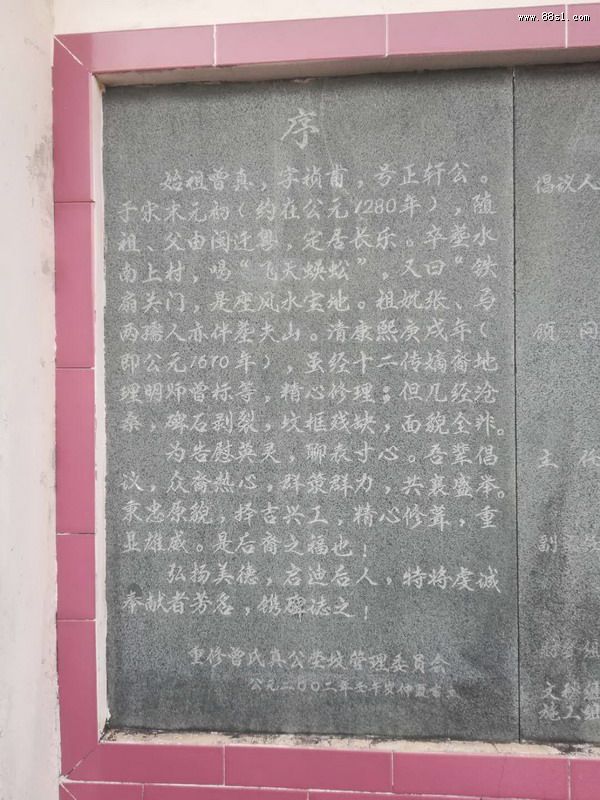 www.88s1.com
序
始祖曾真，字祯甫，号正轩公。
于宋末元初（约在公元1280年），随
祖、父由闽迁粤，定居长乐。卒茔水
南上村，喝“飞天蜈蚣”，又曰“铁
扇关门，是座风水宝地。祖妣张、马
两孺人亦伴茔夫山。清康熙庚戌年（
即公元1670年），虽经十二传嫡裔地
理明师曾标等，精心修理；但几经沧
桑，碑石剥裂，坟框残缺，面貌全非。
为告慰英灵，聊表寸心。吾辈倡
议，众裔热心，群策群力，共襄盛举。
秉忠原貌，择吉兴工，精心修葺，重
显雄威。是后裔之福也！
弘扬美德，启迪后人，特将虔诚
奉献者芳名，镌碑志之！
重修曾氏真公茔坟管理委员会
公元二00二年壬午岁仲夏
倡议人
顾 问
主 任
副主任
文秘组
施工组